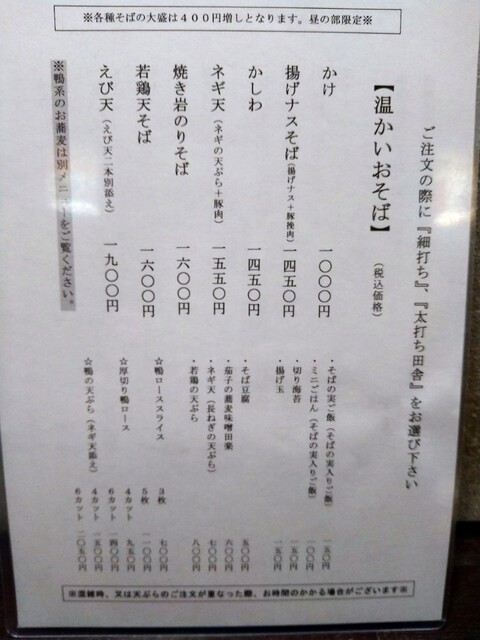 ※各種そばの大盛は４００円増しとなります。昼の部限定※
ご注文の際に『細打ち』、『太打ち田舎』をお選び下さい
【温かいおそば】
（税込価格）
かけ 一〇〇〇円
揚げナスそば（揚げナス＋豚挽肉） 一四五〇円
かしわ 一四五〇円
ネギ天（ネギの天ぷら＋豚肉） 一五五〇円
焼き岩のりそば 一六〇〇円
若鶏天そば 一六〇〇円
えび天（えび天二本別添え） 一九〇〇円
※鴨系のお蕎麦は別メニューをご覧ください。
・そばの実ご飯（そばの実入りご飯） 一五〇円
・ミニごはん（そばの実入りご飯） 一〇〇円
・切り海苔 一五〇円
・揚げ玉 一五〇円
・そば豆腐 五〇〇円
・茄子の蕎麦味噌田楽 六〇〇円
・ネギ天（長ねぎの天ぷら） 七〇〇円
・若鶏の天ぷら 八〇〇円
☆鴨ローススライス 3枚 七〇〇円
5枚 一一〇〇円
☆厚切り鴨ロース 4カット 九五〇円
6カット 一四〇〇円
☆鴨の天ぷら（ネギ天添え） 4カット 一五〇〇円
6カット 二〇五〇円
※混雑時、又は天ぷらのご注文が重なった際、お時間のかかる場合がございます※